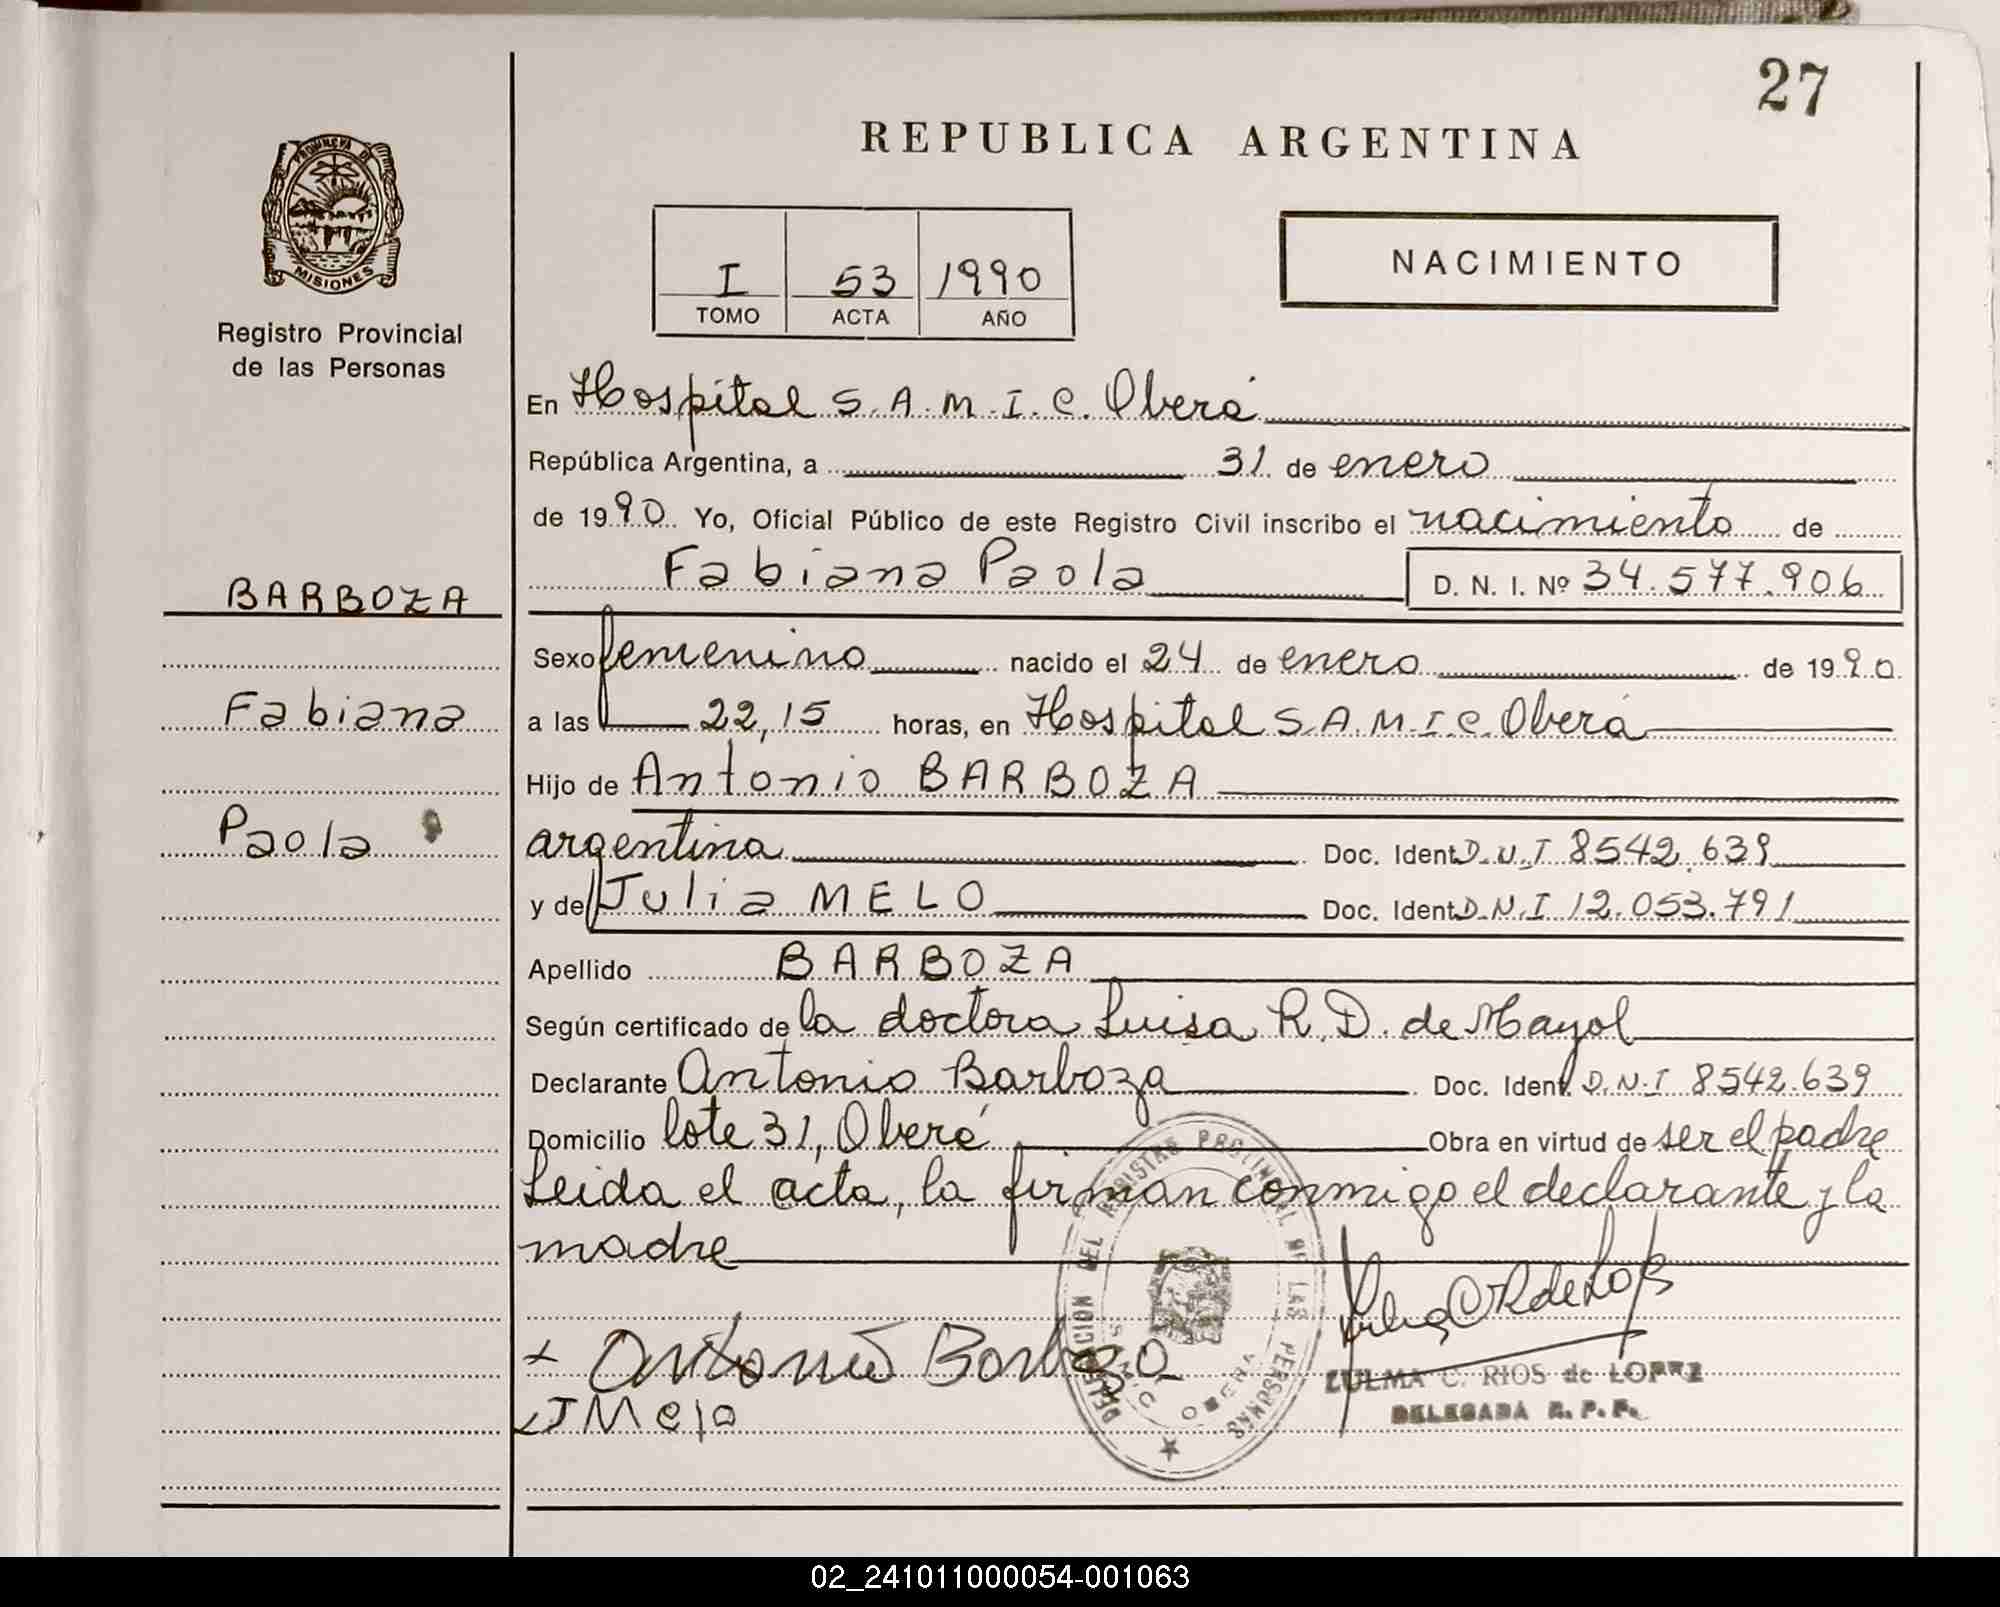 27
REPUBLICA ARGENTINA
PROVINCIA DE
MISIONES
Registro Provincial
de las Personas
I 53 1990
TOMO ACTA AÑO
NACIMIENTO
En Hospital S.A.M.I.C. Oberá
República Argentina, a 31 de enero
de 1990 Yo, Oficial Público de este Registro Civil inscribo el nacimiento de
BARBOZA
Fabiana Paola D. N. I. Nº 34.577.906
Sexo femenino nacido el 24 de enero de 1990
Fabiana
a las 22,15 horas, en Hospital S.A.M.I.C. Oberá
Hijo de Antonio BARBOZA
Paola
argentina Doc. Ident D.N.I 8542.639
y de Julia MELO Doc. Ident D.N.I 12.053.791
Apellido BARBOZA
Según certificado de la doctora Luisa R.D. de Mayol
Declarante Antonio Barboza Doc. Ident. D.N.I 8542.639
Domicilio lote 31, Oberá Obra en virtud de ser el padre
Leida el acta, la firman conmigo el declarante y la
madre
DELEGACION DEL REGISTRO PROVINCIAL DE LAS PERSONAS
OBERA
x Antonio Barboza
ZULMA C. RIOS de LOPEZ
DELEGADA R. P. P.
J Melo
02_241011000054-001063